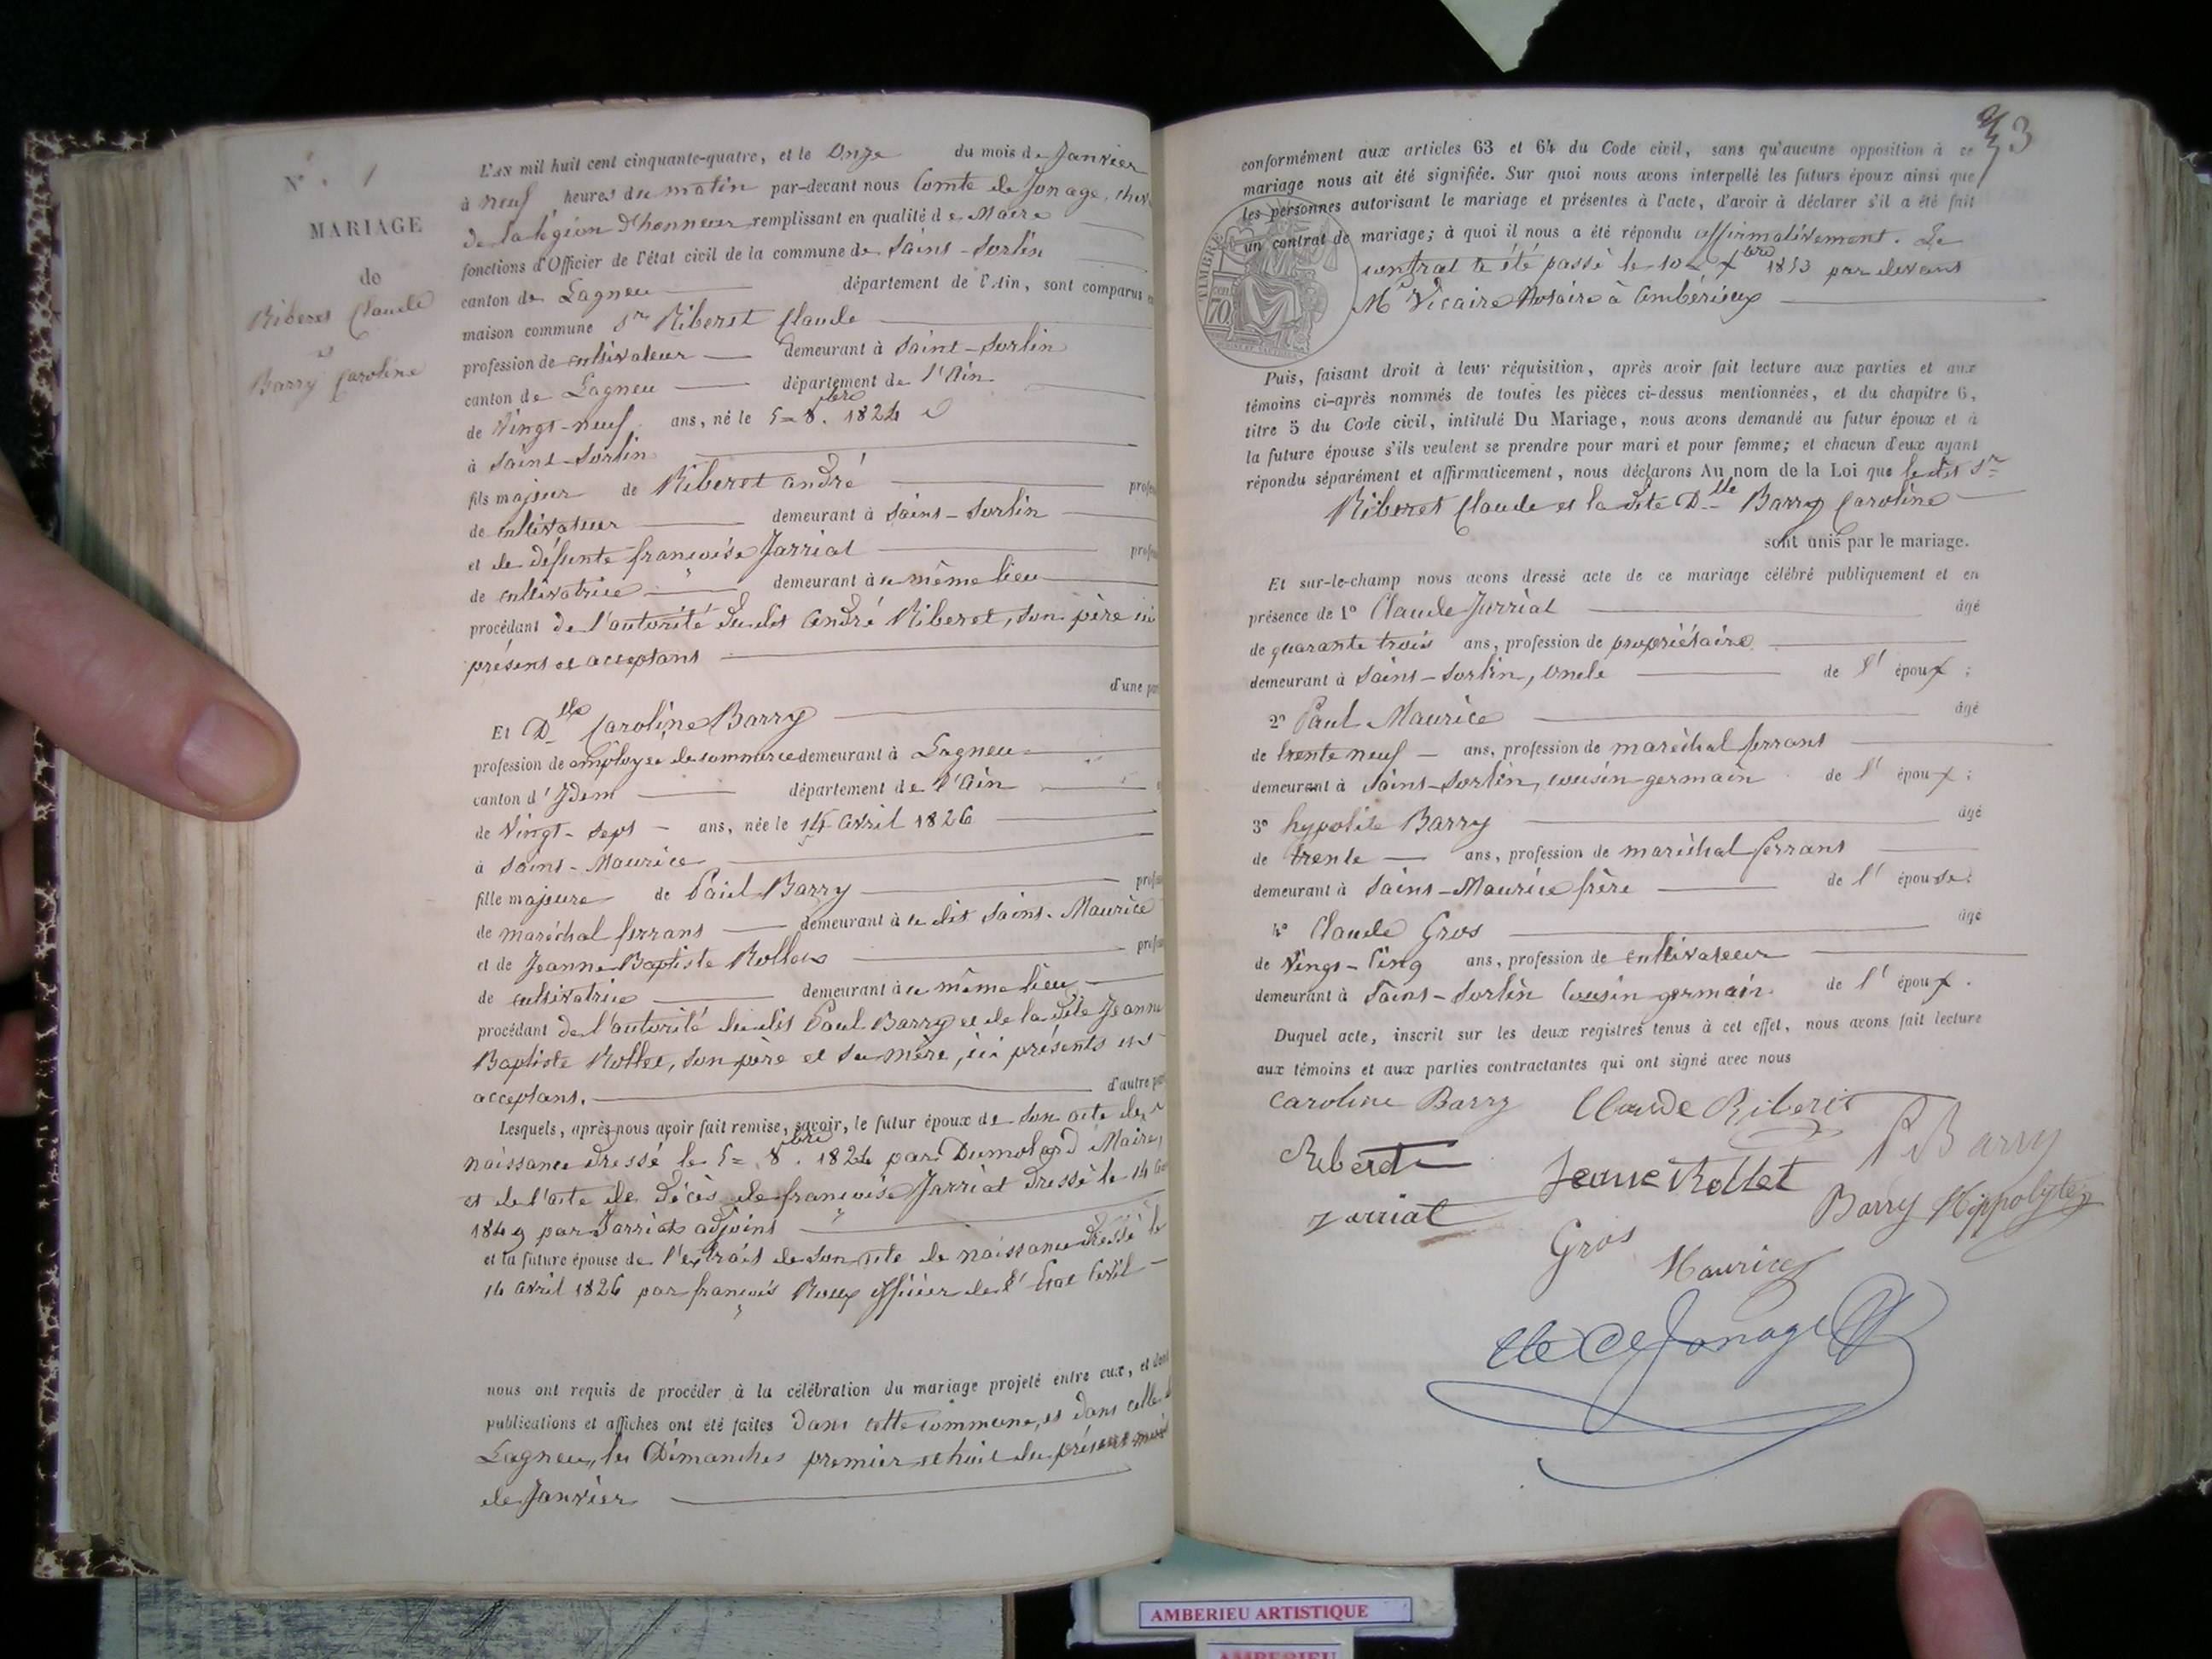 N° 1
MARIAGE
de
Riberet Claude
et
Barry Caroline
L'AN mil huit cent cinquante-quatre, et le Onze du mois de Janvier
à neuf heures du matin par-devant nous Comte de Jonage, chev
de la légion d'honneur remplissant en qualité de Maire
fonctions d'Officier de l'état civil de la commune de Saint-Sorlin
canton de Lagneu département de l'Ain, sont comparus
maison commune Sr Riberet Claude
profession de cultivateur demeurant à Saint-Sorlin
canton de Lagneu département de l'Ain
de Vingt-neuf ans, né le 5 8bre 1824
à Saint-Sorlin
fils majeur de Riberet andré profes
de cultivateur demeurant à Saint-Sorlin
et de défunte françoise Jarriat profes
de cultivatrice demeurant à ce même lieu
procédant de l'autorité du dit André Riberet, son père ici
présent et acceptant
d'une par
Et Dlle Caroline Barry
profession de employée de commerce demeurant à Lagneu
canton d'Idem département de l'Ain
de Vingt-sept ans, née le 14 Avril 1826
à Saint-Maurice
fille majeure de Paul Barry profes
de maréchal ferrant demeurant à ce dit Saint-Maurice
et de Jeanne Baptiste Rollet profes
de cultivatrice demeurant à ce même lieu
procédant de l'autorité du dit Paul Barry et de la dite Jeanne
Baptiste Rollet, son père et sa mère, ici présents et
acceptant. d'autre par
Lesquels, après nous avoir fait remise, savoir, le futur époux de son acte de
naissance dressé le 5 8bre 1824 par Dumolard Maire,
et de l'acte de décès de françoise Jarriat dressé le 14
1849 par Jarriat adjoint
et la future épouse de l'extrait de son acte de naissance dressé le
14 avril 1826 par françois Roux officier de l'Etat Civil
nous ont requis de procéder à la célébration du mariage projeté entre eux, et dont
publications et affiches ont été faites dans cette commune, et dans celle de
Lagneu, les Dimanches premier et huit du présent mois
de Janvier
3
conformément aux articles 63 et 64 du Code civil, sans qu'aucune opposition à ce
mariage nous ait été signifiée. Sur quoi nous avons interpellé les futurs époux ainsi que
les personnes autorisant le mariage et présentes à l'acte, d'avoir à déclarer s'il a été fait
un contrat de mariage; à quoi il nous a été répondu affirmativement. Le
contrat a été passé le 10 Xbre 1853 par devant
Me Vicaire Notaire à Ambérieux
TIMBRE
70
Puis, faisant droit à leur réquisition, après avoir fait lecture aux parties et aux
témoins ci-après nommés de toutes les pièces ci-dessus mentionnées, et du chapitre 6,
titre 5 du Code civil, intitulé Du Mariage, nous avons demandé au futur époux et à
la future épouse s'ils veulent se prendre pour mari et pour femme; et chacun d'eux ayant
répondu séparément et affirmativement, nous déclarons Au nom de la Loi que le dit Sr
Riberet Claude et la dite Dlle Barry Caroline
sont unis par le mariage.
Et sur-le-champ nous avons dressé acte de ce mariage célébré publiquement et en
présence de 1° Claude Jarriat âgé
de quarante trois ans, profession de propriétaire
demeurant à Saint-Sorlin, oncle de l'époux;
2° Paul Maurice âgé
de trente neuf ans, profession de maréchal ferrant
demeurant à Saint-Sorlin, cousin germain de l'époux;
3° hypolite Barry âgé
de trente ans, profession de maréchal ferrant
demeurant à Saint-Maurice frère de l'épouse;
4° Claude Gros âgé
de Vingt-Cinq ans, profession de cultivateur
demeurant à Saint-Sorlin Cousin germain de l'époux.
Duquel acte, inscrit sur les deux registres tenus à cet effet, nous avons fait lecture
aux témoins et aux parties contractantes qui ont signé avec nous
Caroline Barry Claude Riberet
P Barry
Riberet
Jeanne Rollet
Jarriat
Barry Hippolyte
Gros
Maurice
Cte de Jonage
AMBERIEU ARTISTIQUE
AMBERIEU